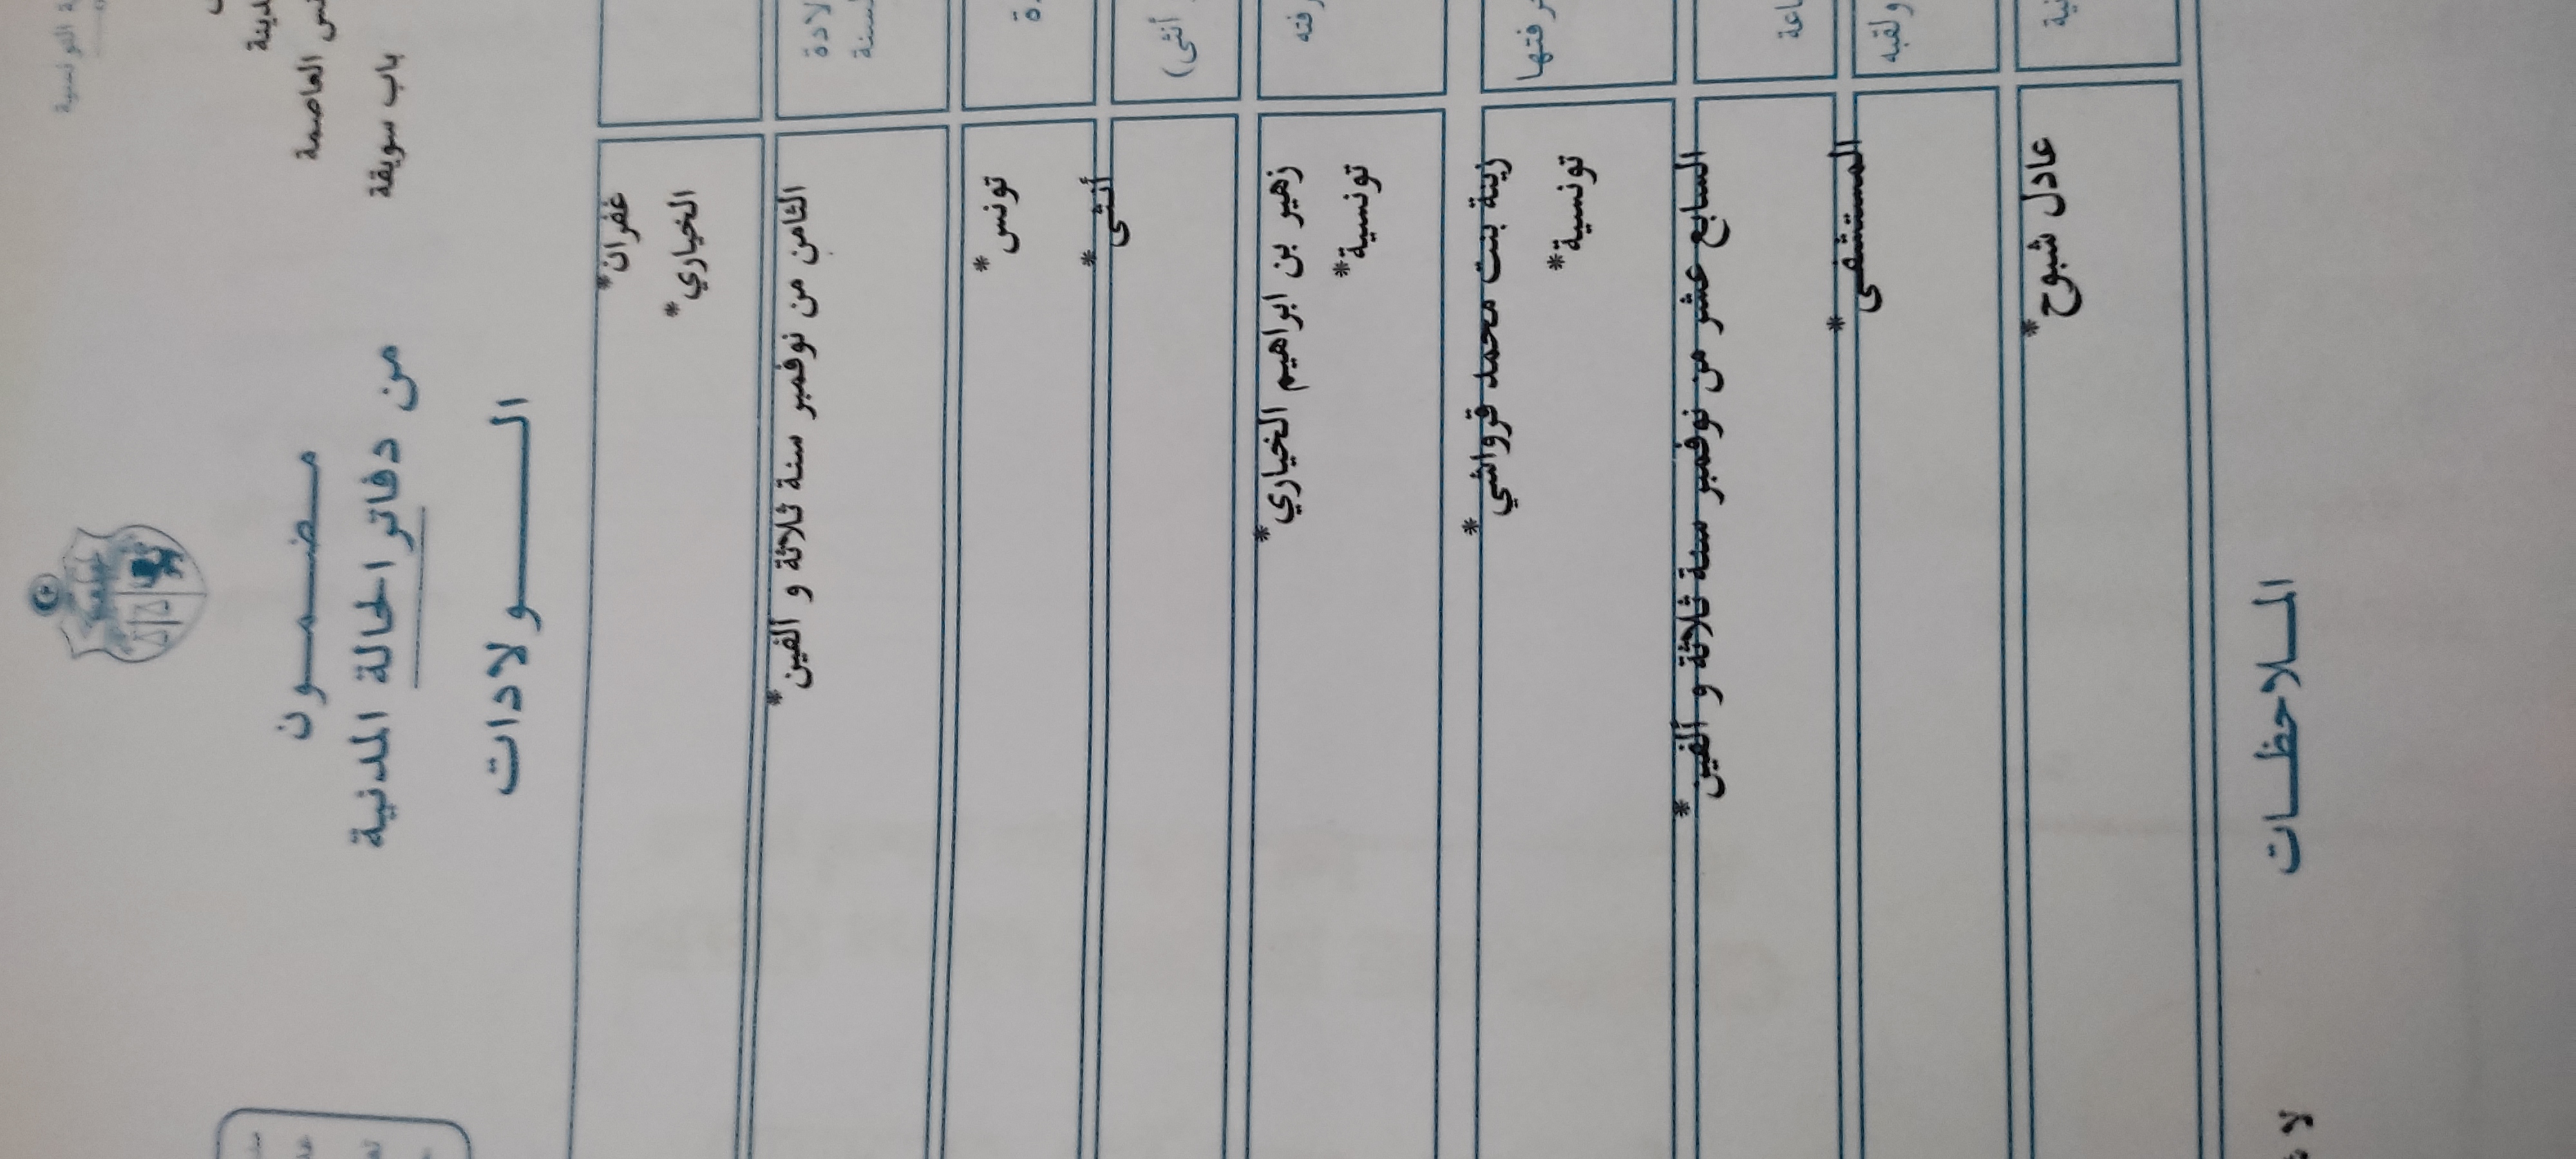 العاصمة
باب سويقة
مضمون
من دفاتر الحالة المدنية
الولادات
غفران*
الخياري*
الثامن من نوفمبر سنة ثلاثة و ألفين*
تونس*
أنثى)
أنثى*
زهير بن ابراهيم الخياري*
تونسية*
زينة بنت محمد قرواشي*
تونسية*
السابع عشر من نوفمبر سنة ثلاثة و ألفين*
ولقبه
المستشفى*
عادل شبوح*
الملاحظات
لا